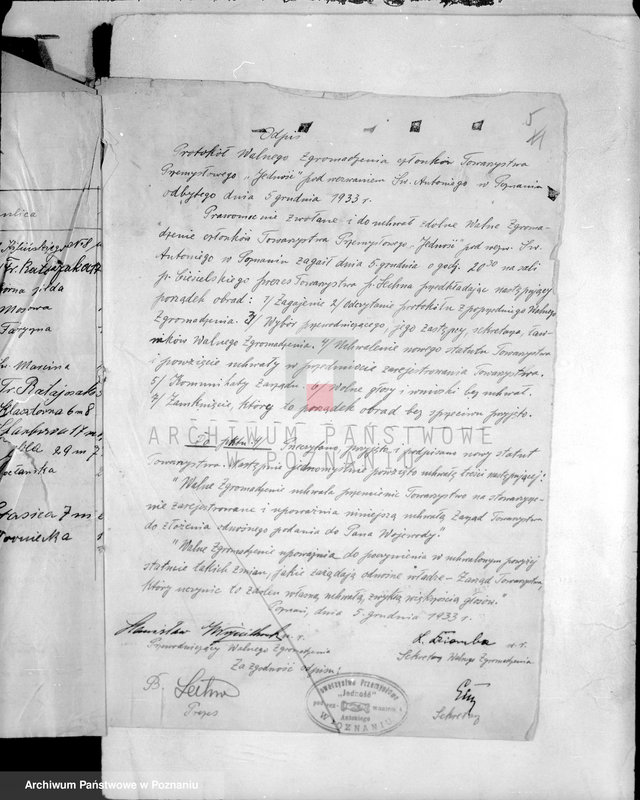 5
Odpis
Protokół Walnego Zgromadzenia członków Towarzystwa
Przemysłowego "Jedność" pod wezwaniem Św. Antoniego w Poznaniu
odbytego dnia 5 grudnia 1933 r.
Prawomocnie zwołane i do uchwał zdolne Walne Zgroma-
dzenie członków Towarzystwa Przemysłowego "Jedność" pod wezw. Św.
Antoniego w Poznaniu zagaił dnia 5. grudnia o godz. 20³⁰ na sali
p. Ciesielskiego prezes Towarzystwa p. przedkładając następujący
porządek obrad: 1/ Zagajenie 2/ Odczytanie protokółu z poprzedniego Walnego
Zgromadzenia. 3/ Wybór przewodniczącego, jego zastępcy, sekretarza, ław-
ników Walnego Zgromadzenia. 4/ Uchwalenie nowego statutu Towarzystwa
i powzięcie uchwały w przedmiocie zarejestrowania Towarzystwa.
5/ Komunikaty Zarządu. 6/ Wolne głosy i wnioski bez uchwał.
7/ Zamknięcie, który to porządek obrad bez sprzeciwu przyjęto.
Do pktu 4/ Przeczytano, przyjęto i podpisano nowy statut
Towarzystwa. Następnie jednomyślnie powzięto uchwałę treści następującej:
"Walne Zgromadzenie uchwala przemienić Towarzystwo na stowarzysze-
nie zarejestrowane i upoważnia niniejszą uchwałą Zarząd Towarzystwa
do złożenia odnośnego podania do Pana Wojewody."
"Walne Zgromadzenie upoważnia do poczynienia w uchwalonym powyżej
statucie takich zmian, jakie zażądają odnośne władze – Zarząd Towarzystwa,
który uczynić to zdoła własną uchwałą, zwykłą większością głosów."
Poznań, dnia 5. grudnia 1933 r.
Stanisław
Przewodniczący Walnego Zgromadzenia
Sekretarz Walnego Zgromadzenia
Za zgodność odpisu:
Prezes
Sekretarz
Towarzystwo Przemysłowe
"Jedność"
pod wezwaniem św.
Antoniego
W POZNANIU
ulica
Fr. Ratajczaka
Mostowa
Św. Marcina
Fr. Ratajczaka
Klasztorna 6 m 8
ARCHIWUM PAŃSTWOWE
W POZNANIU
Archiwum Państwowe w Poznaniu